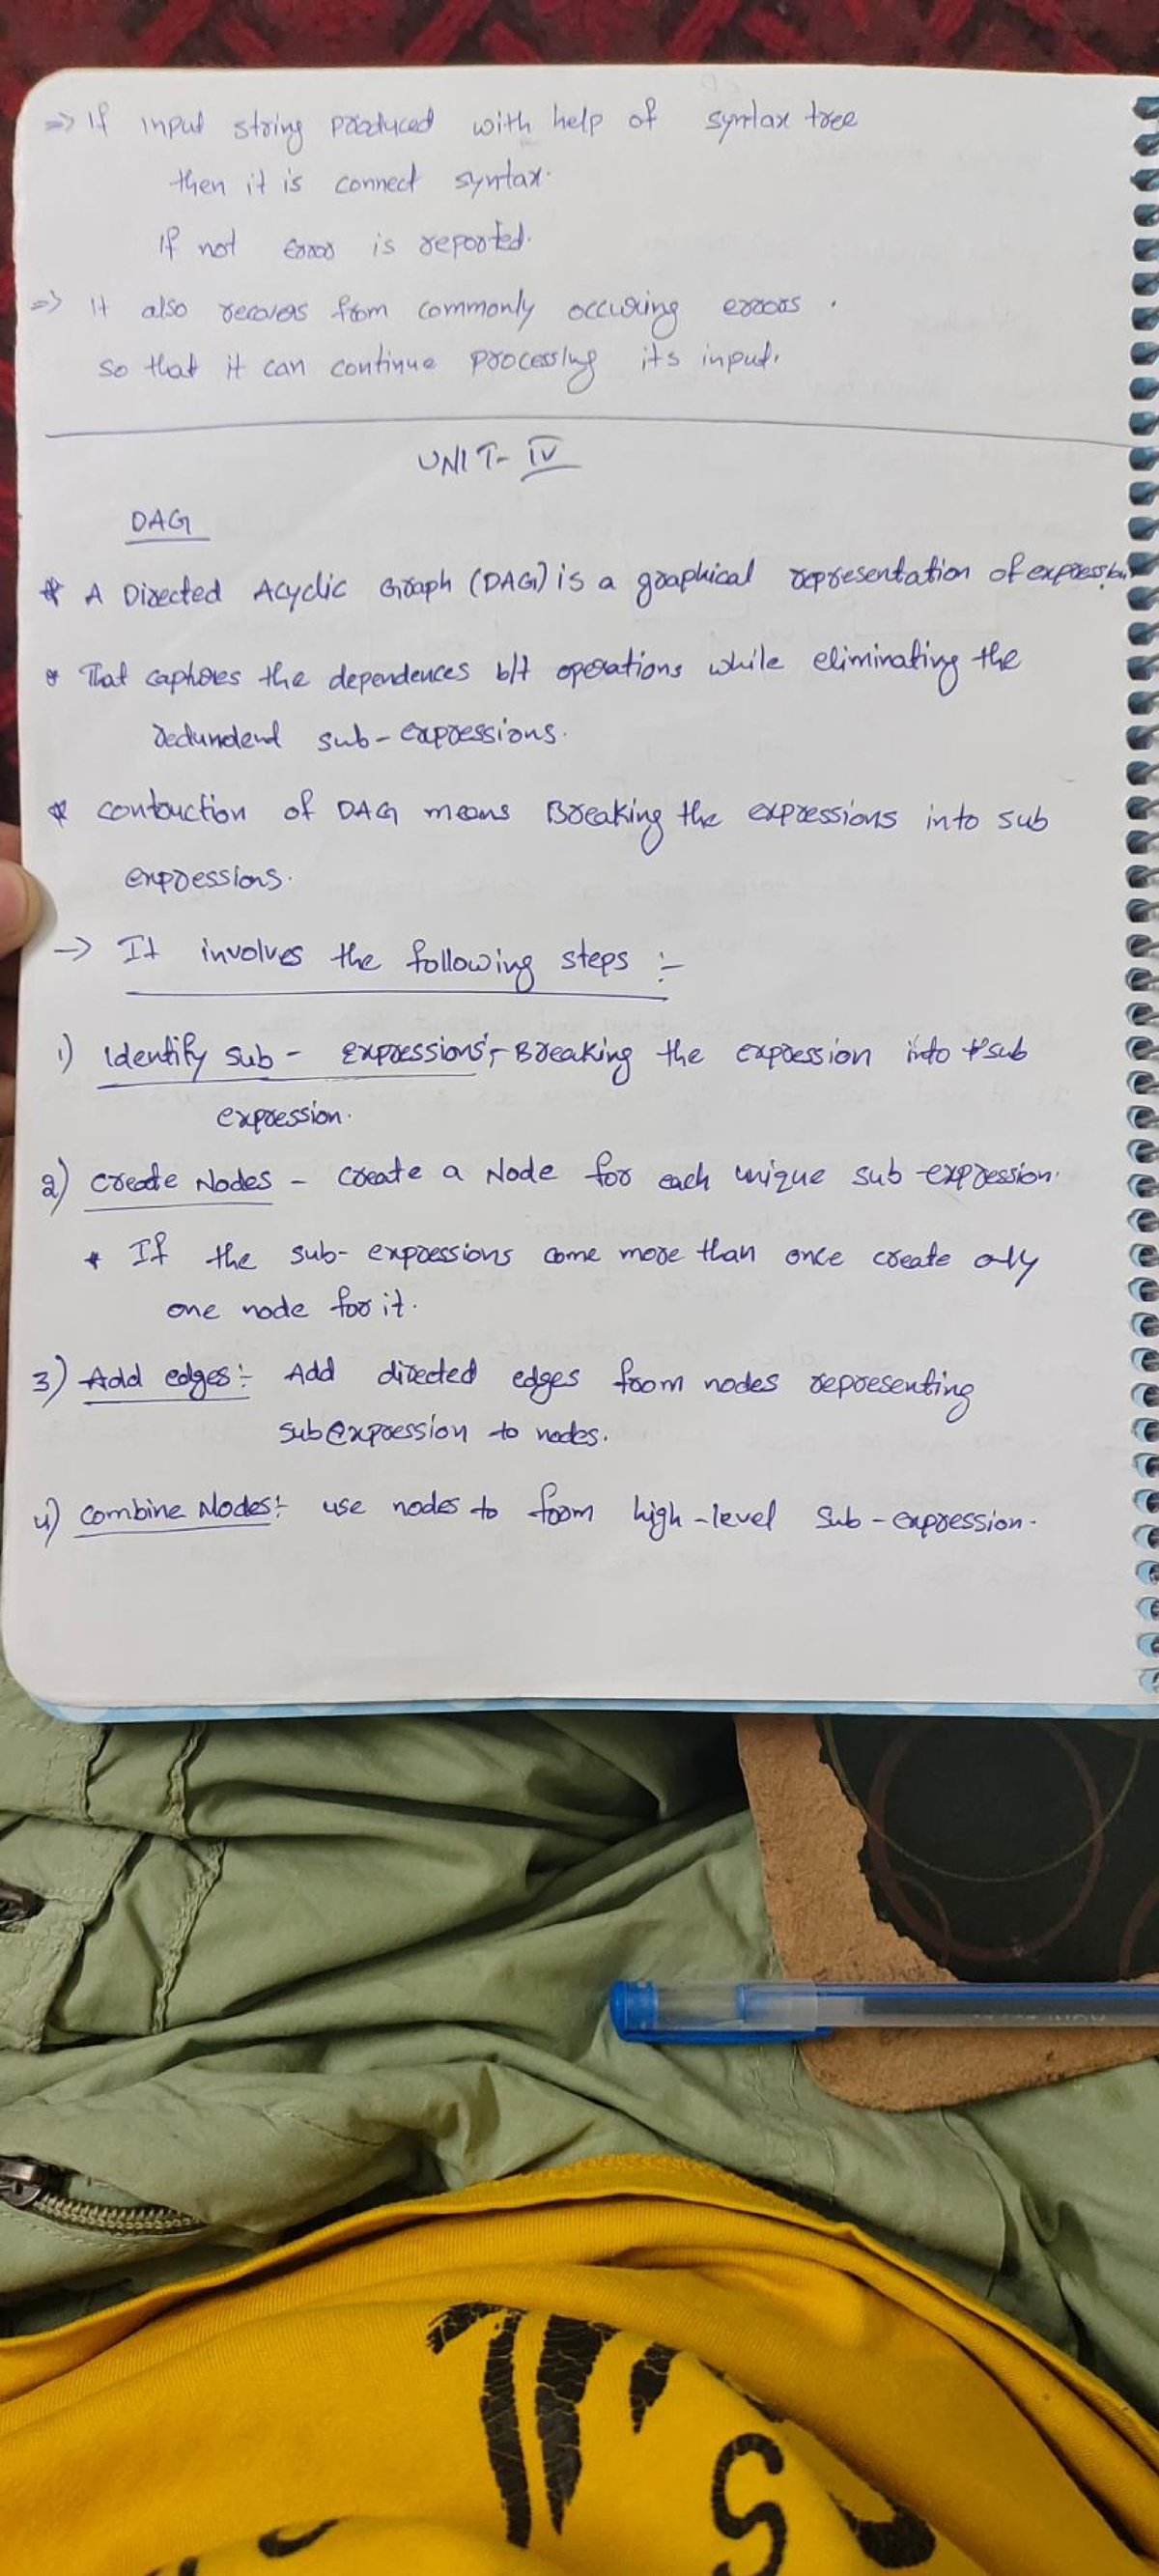 => If input string produced with help of syntax tree
then it is connect syntax.
if not error is reported.
=> It also recovers from commonly occuring errors .
so that it can continue processing its input.
UNIT- IV
DAG
* A Directed Acyclic Graph (DAG) is a graphical representation of expression
* That captures the dependences b/t operations while eliminating the
redundend sub-expressions.
* contruction of DAG means Breaking the expressions into sub
expressions.
-> It involves the following steps :-
1) Identify sub - expressions:- Breaking the expression into sub
expression.
2) create Nodes - create a Node for each unique sub expression.
* If the sub- expressions come more than once create only
one node for it.
3) Add edges:- Add directed edges from nodes representing
subexpression to nodes.
4) combine Nodes:- use nodes to form high-level sub-expression.
S